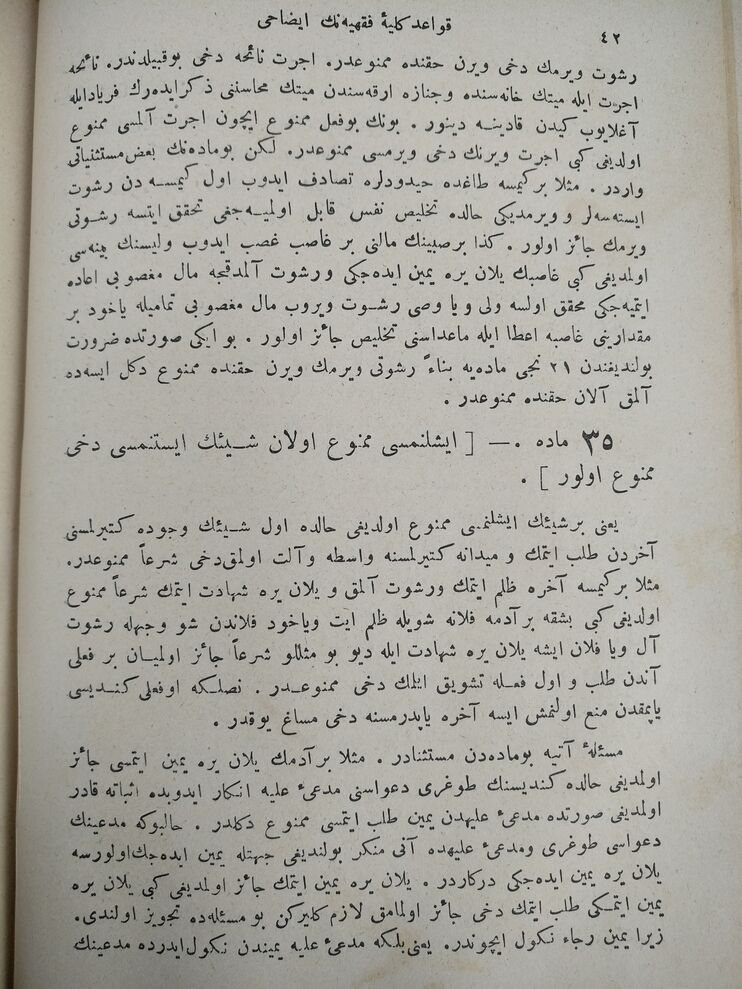 ٤٢
قواعد كليهٔ فقهيه‌نك ايضاحى
رشوت ويرمك دخى ويرن حقنده ممنوعدر. اجرت نائحه دخى بوقبيلدندر. نائحه
اجرت ايله ميتك خانه‌سنده وجنازه ارقه‌سندن ميتك محاسننى ذكرايده‌رك فريادايله
آغلايوب كيدن قادينه دينور . بونك بوفعل ممنوع ايچون اجرت آلمسى ممنوع
اولديغى كبى اجرت ويرنك دخى ويرمسى ممنوعدر. لكن بوماده‌نك بعض‌مستثنياتى
واردر . مثلا بركيمسه طاغده حيدودلره تصادف ايدوب اول كيمسه‌دن رشوت
ايسته‌سه‌لر و ويرمديكى حالده تخليص نفس قابل اولميه‌جغى تحقق ايتسه رشوتى
ويرمك جائز اولور . كذا برصبينك مالنى بر غاصب غصب ايدوب وليسنك بينه‌سى
اولمديغى كبى غاصبك يلان يره يمين ايده‌جكى ورشوت آلمدقجه مال مغصوبى اعاده
ايتميه‌جكى محقق اولسه ولى ويا وصى رشوت ويروب مال مغصوبى تماميله ياخود بر
مقدارينى غاصبه اعطا ايله ماعداسنى تخليص جائز اولور . بو ايكى صورتده ضرورت
بولنديغندن ٢١ نجى ماده‌يه بناءً رشوتى ويرمك ويرن حقنده ممنوع دكل ايسه‌ده
آلمق آلان حقنده ممنوعدر .
٣٥ ماده .— [ ايشلنمسى ممنوع اولان شيئك ايستنمسى دخى
ممنوع اولور ] .
يعنى برشيئك ايشلنمسى ممنوع اولديغى حالده اول شيئك وجوده كتيرلمسنى
آخردن طلب ايتمك و ميدانه كتيرلمسنه واسطه وآلت اولمق‌دخى شرعاً ممنوعدر.
مثلا بركيمسه آخره ظلم ايتمك ورشوت آلمق و يلان يره شهادت ايتمك شرعاً ممنوع
اولديغى كبى بشقه برآدمه فلانه شويله ظلم ايت وياخود فلاندن شو وجهله رشوت
آل ويا فلان ايشه يلان يره شهادت ايله ديو بو مثللو شرعاً جائز اولميان بر فعلى
آندن طلب و اول فعله تشويق ايلك دخى ممنوعدر . نصلكه اوفعلى كنديسى
ياپمقدن منع اولنمش ايسه آخره ياپدرمسنه دخى مساغ يوقدر .
مسئلهٔ آتيه بوماده‌دن مستثنادر . مثلا برآدمك يلان يره يمين ايتمسى جائز
اولمديغى حالده كنديسنك طوغرى دعواسنى مدعىٰ عليه انكار ايدوبده اثباته قادر
اولمديغى صورتده مدعىٰ عليهدن يمين طلب ايتمسى ممنوع دكلدر . حالبوكه مدعينك
دعواسى طوغرى ومدعىٰ عليهده آنى منكر بولنديغى جهتله يمين ايده‌جك‌اولورسه
يلان يره يمين ايده‌جكى دركاردر . يلان يره يمين ايتمك جائز اولمديغى كبى يلان يره
يمين ايتمكى طلب ايتمك دخى جائز اولمامق لازم كليركن بو مسئله‌ده تجويز اولندى.
زيرا يمين رجاء نكول ايچوندر. يعنى‌بلكه مدعىٰ عليه يميندن نكول‌ايدرده مدعينك